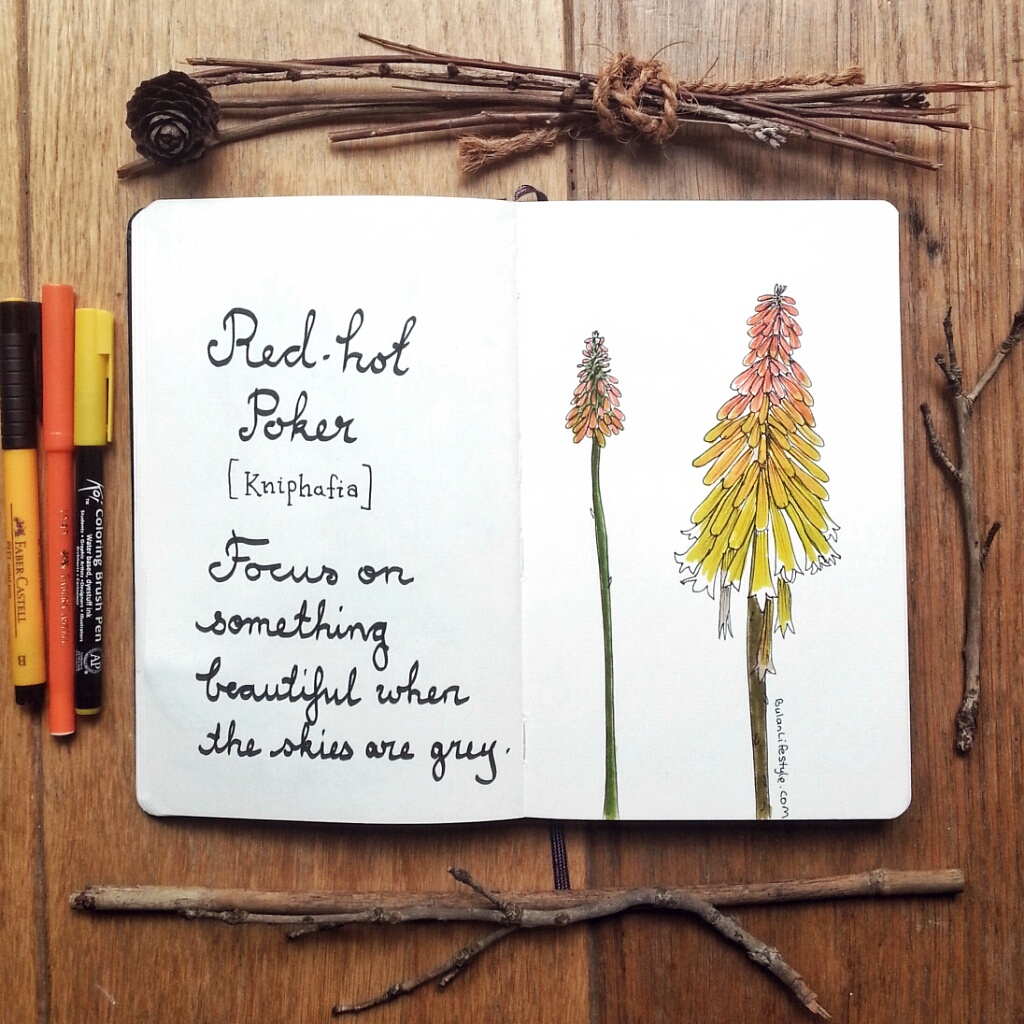 Red-hot
Poker
[Kniphafia]
Focus on
something
beautiful when
the skies are grey.
BulanLifestyle.com
FABER-CASTELL
B
Koi Coloring Brush Pen
Water based, dyestuff ink
AP